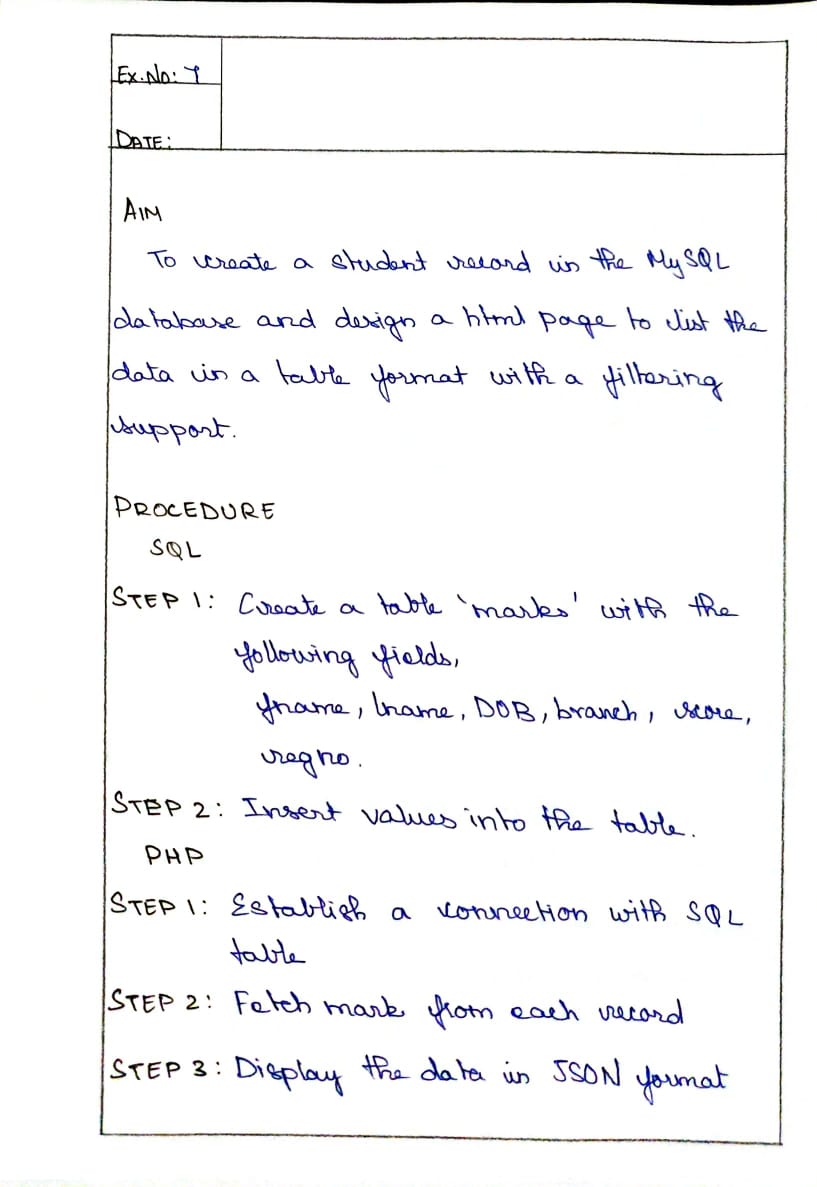 Ex.No: 7
DATE:
AIM
To create a student record in the MySQL
database and design a html page to list the
data in a table format with a filtering
support.
PROCEDURE
SQL
STEP 1: Create a table 'marks' with the
following fields,
fname, lname, DOB, branch, score,
regno.
STEP 2: Insert values into the table.
PHP
STEP 1: Establish a connection with SQL
table
STEP 2: Fetch mark from each record
STEP 3: Display the data in JSON format